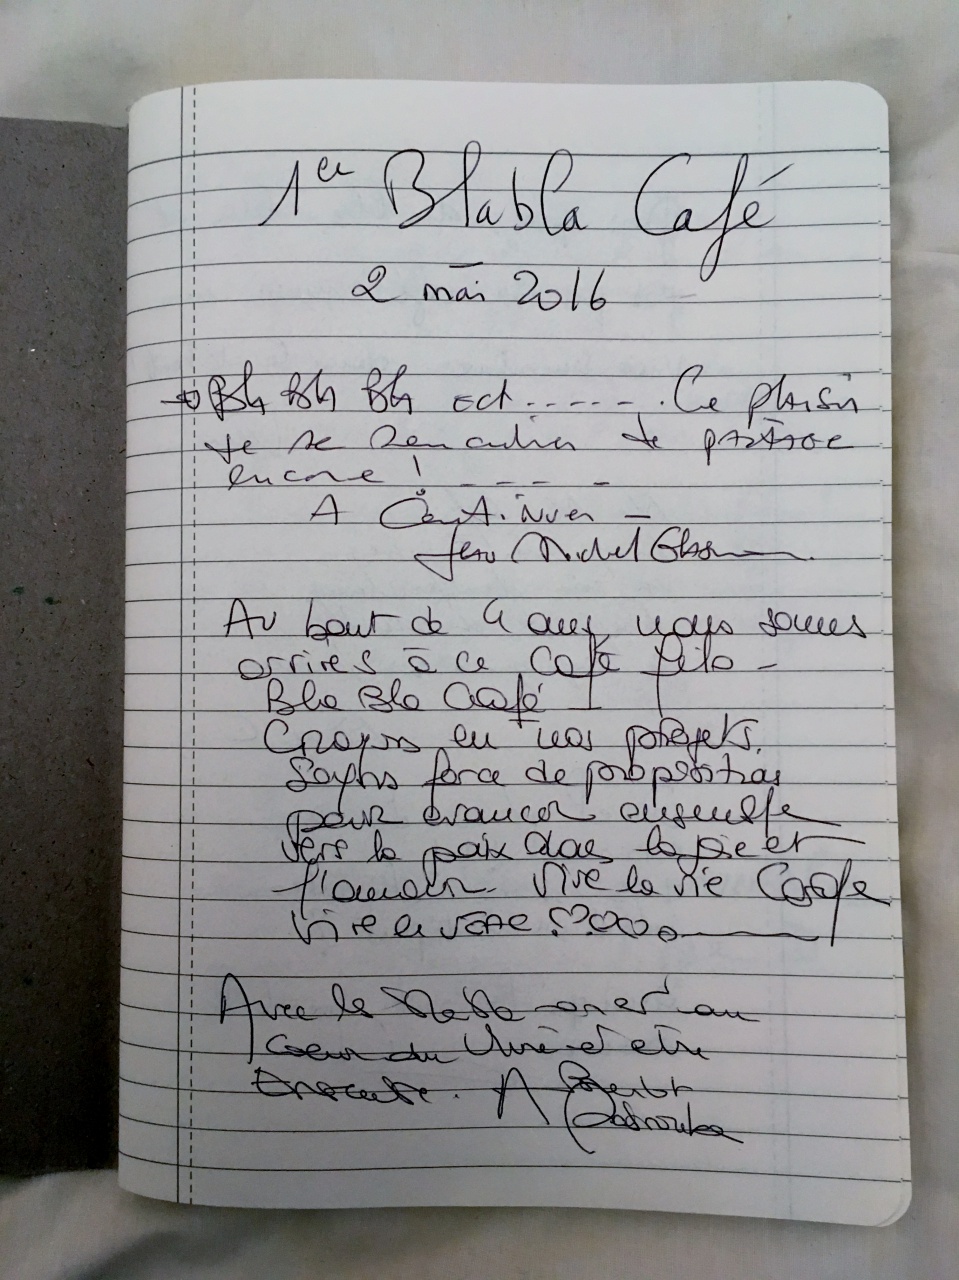 1er Blabla Café
2 mai 2016
Bla Bla Bla est ........ Ce plaisir
de se rencontrer de partage
encore ! - - - -
A Continuer -
Jean Michel
Au bout de 4 ans nous sommes
arrivés à ce Café philo -
Bla Bla Café !
Croyons en nos projets.
Soyons force de propositions
pour avancer ensemble
vers la paix dans la joie et
l'amour. Vive la vie
Vive le
Avec le Blabla on est au
coeur du Vivre et être
Ensemble. A